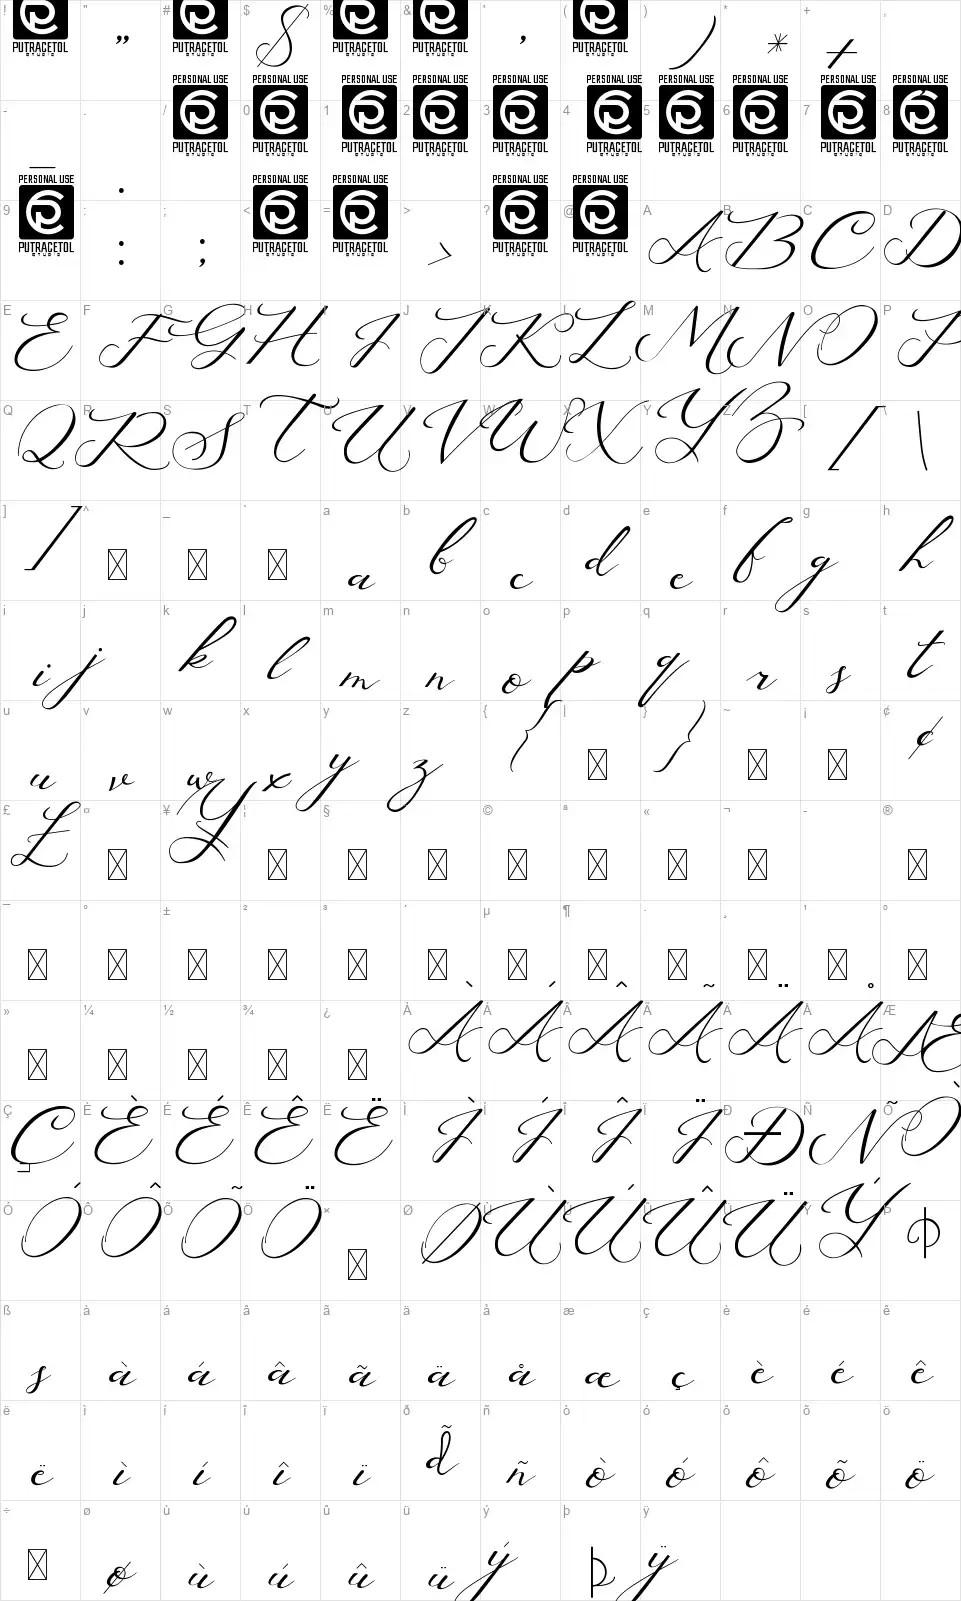 ! " # $ % & ' ( ) * + ,
PUTRACETOL STUDIO ” $ PUTRACETOL STUDIO PUTRACETOL STUDIO ’ PUTRACETOL STUDIO ) * +
- . / 0 1 2 3 4 5 6 7 8
PERSONAL USE PUTRACETOL STUDIO PERSONAL USE PUTRACETOL STUDIO PERSONAL USE PUTRACETOL STUDIO PERSONAL USE PUTRACETOL STUDIO PERSONAL USE PUTRACETOL STUDIO PERSONAL USE PUTRACETOL STUDIO PERSONAL USE PUTRACETOL STUDIO PERSONAL USE PUTRACETOL STUDIO PERSONAL USE PUTRACETOL STUDIO PERSONAL USE PUTRACETOL STUDIO
_ .
9 : ; < = > ? @ A B C D
PERSONAL USE PUTRACETOL STUDIO : ; PERSONAL USE PUTRACETOL STUDIO PERSONAL USE PUTRACETOL STUDIO > PERSONAL USE PUTRACETOL STUDIO PERSONAL USE PUTRACETOL STUDIO A B C D
E F G H I J K L M N O P
E F G H I J K L M N O P
Q R S T U V W X Y Z [ \
Q R S T U V W X Y Z [ \
] ^ _ ` a b c d e f g h
] a b c d e f g h
i j k l m n o p q r s t
i j k l m n o p q r s t
u v w x y z { | } ~ ¡ ¢
u v w x y z { } ¢
£ ¤ ¥ ¦ § © ª « ¬ - ®
£ ¥
¯ ° ± ² ³ ´ µ ¶ · ¸ ¹ º
» ¼ ½ ¾ ¿ À Á Â Ã Ä Å Æ
À Á Â Ã Ä Å Æ
Ç È É Ê Ë Ì Í Î Ï Ð Ñ Õ
Ç È É Ê Ë Ì Í Î Ï Ð Ñ Ò
Ó Ô Õ Ö × Ø Ù Ú Û Ü Ý Þ
Ó Ô Õ Ö Ø Ù Ú Û Ü Ý Þ
ß à á â ã ä å æ ç è é ê
s à á â ã ä å æ ç è é ê
ë ì í î ï ð ñ ò ó ô õ ö
ë ì í î ï d̃ ñ ò ó ô õ ö
÷ ø ù ú û ü ý þ ÿ
ø ù ú û ü ý þ ÿ